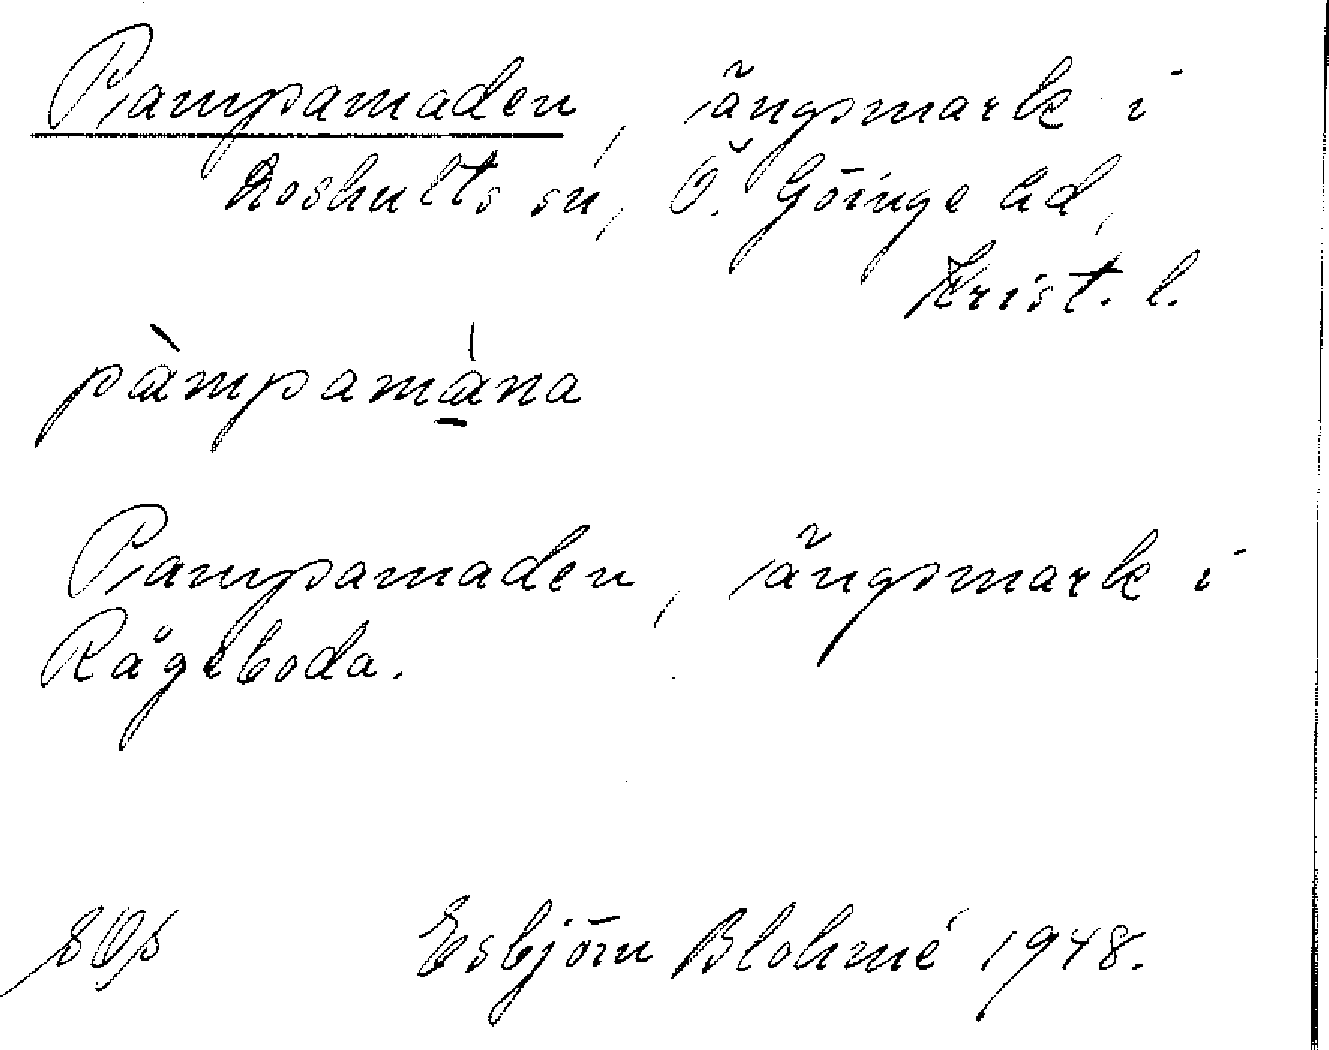 Pampamaden, ängsmark i
Loshults sn, Ö. Göinge hd,
Krist. l.
pàmpamána
Pampamaden, ängsmark i
Rågeboda.
Esbjörn Blohmé 1948.